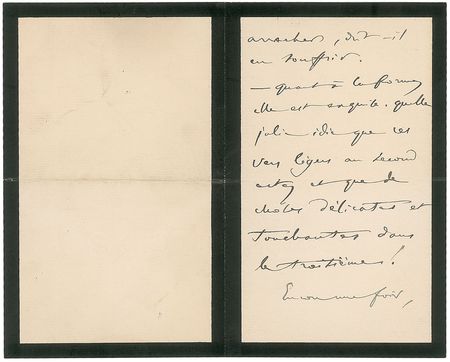 arracher, dût-il
en souffrir.
— quant à la forme,
elle est exquise. quelle
jolie idée que ces
vers légers au second
et que de
choses délicates et
touchantes dans
le troisième!
Encore une fois,